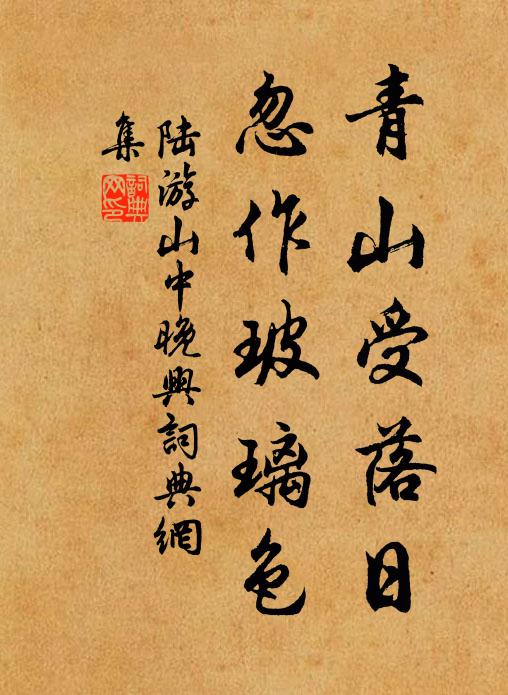 青山受落日
忽作玻璃色
陆游山中晚興詞典網
集
詞典网印